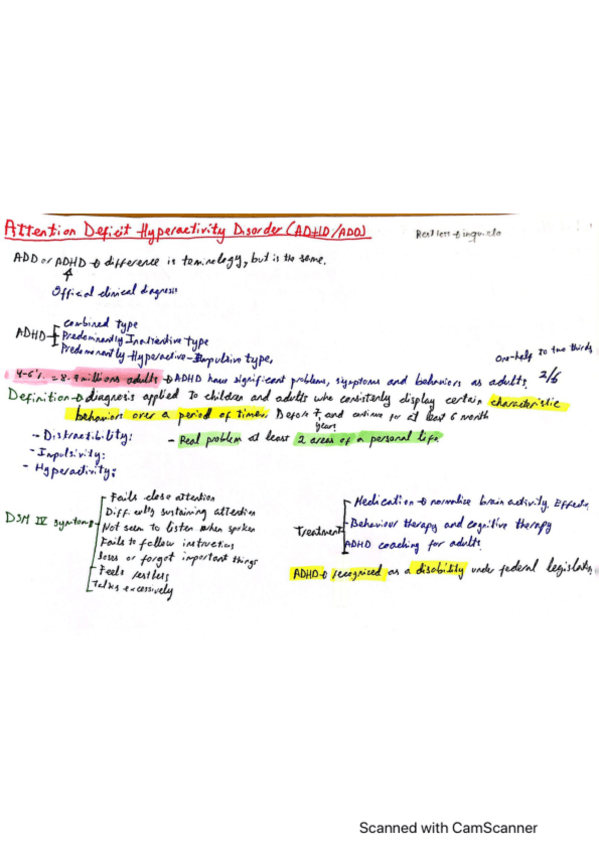 Attention Deficit Hyperactivity Disorder (ADHD/ADD)
Restless → inquieto
ADD or ADHD → difference is teminology, but is the same.
Official clinical diagnosis
ADHD
Combined type
Predominantly Inattentive type
Predominantly Hyperactive-Impulsive type.
One-half to two thirds
4-6% = 8-9 millions adults → ADHD have significant problems, symptoms and behaviors as adults. 2/6
Definition → diagnosis applied to children and adults who consistenly display certain characteristic
behaviors over a period of time. Before 7, and continue for at least 6 month
years
- Distractibility:
- Real problem at least 2 areas of a personal life.
- Impulsivity:
- Hyperactivity:
DSM IV symtoms
Fails close attention
Difficulty sustaining attention
Not seem to listen when spoken
Fails to follow instruction
loses or forgot important things
Feels restless
Talks excessively
Treatment
Medication → normalize brain activity. Effects
Behaviour therapy and cognitive therapy
ADHD coaching for adults.
ADHD → recognized as a disability under federal legislation
Scanned with CamScanner